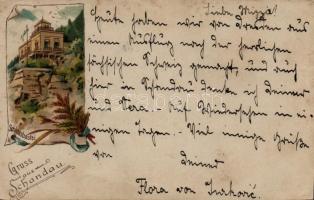 Liebe Mizzi!
Heute haben wir von Dresden aus
einen Ausflug nach der herrlichen
sächsischen Schweiz gemacht, und auch
hier in Schandau denken ich Deiner
und Cara. Auf Wiedersehen in ei-
nigen Tagen. Viel innige Grüße
von
Deiner
Flora von
Gruss
aus
Schandau